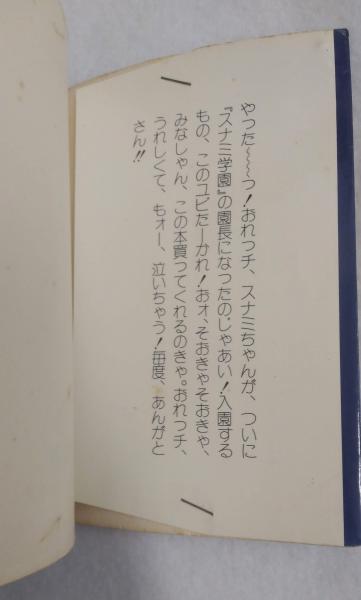 やった〜〜〜っ！おれっチ、スナミちゃんが、ついに
『スナミ学園』の園長になったのじゃあい！入園する
もの、このユビたーかれ！おォ、そおきゃそおきゃ、
みなしゃん、この本買ってくれるのきゃ。おれっチ、
うれしくて、もォー、泣いちゃう！毎度、あんがと
さん!!